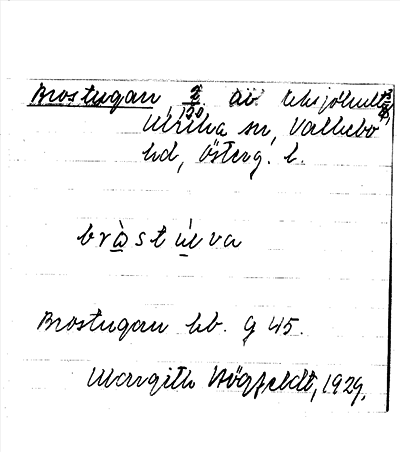 Brostugan, 2/120 av Uksjöhult
Ulrika sn, Vallebo
hd, Österg. l.
bròstúva
Brostugan hb. g 45.
Margith Högfeldt, 1929.